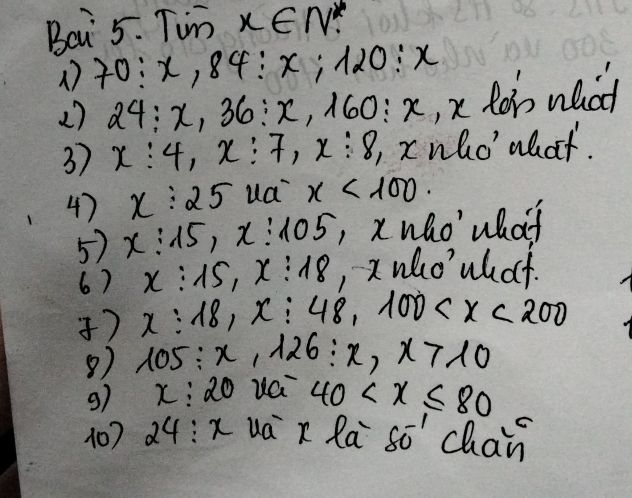 Bài 5. Tìm x ∈ N*
1) 70 ⋮ x, 84 ⋮ x ; 120 ⋮ x
2) 24 ⋮ x, 36 ⋮ x, 160 ⋮ x, x lớn nhất
3) x ⋮ 4, x ⋮ 7, x ⋮ 8, x nhỏ nhất.
4) x ⋮ 25 và x < 100.
5) x ⋮ 15, x ⋮ 105, x nhỏ nhất
6) x ⋮ 15, x ⋮ 18, x nhỏ nhất.
7) x ⋮ 18, x ⋮ 48, 100 < x < 200
8) 105 ⋮ x, 126 ⋮ x, x > 10
9) x ⋮ 20 và 40 < x ≤ 80
10) 24 ⋮ x và x là số chẵn